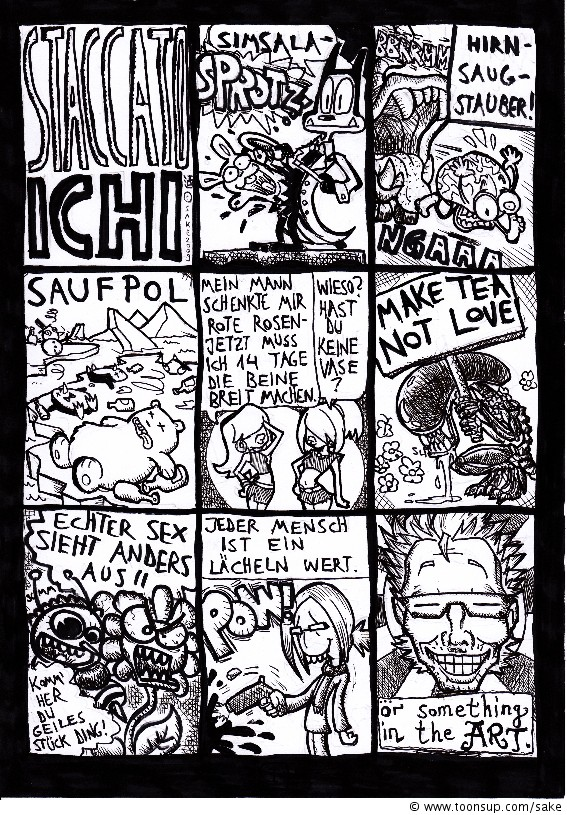 STACCATO
ICHI
© SAKE 2003
SIMSALA-
SPROTZ!
RRRRMM
HIRN-
SAUG-
STAUBER!
NGAAA
SAUFPOL
MEIN MANN
SCHENKTE MIR
ROTE ROSEN-
JETZT MUSS
ICH 14 TAGE
DIE BEINE
BREIT MACHEN.
WIESO?
HAST
DU
KEINE
VASE
?
MAKE TEA
NOT LOVE
ECHTER SEX
SIEHT ANDERS
AUS!!
KOMM
HER
DU
GEILES
STÜCK DING!
JEDER MENSCH
IST EIN
LÄCHELN WERT.
POW!
ör something
in the ART.
© www.toonsup.com/sake